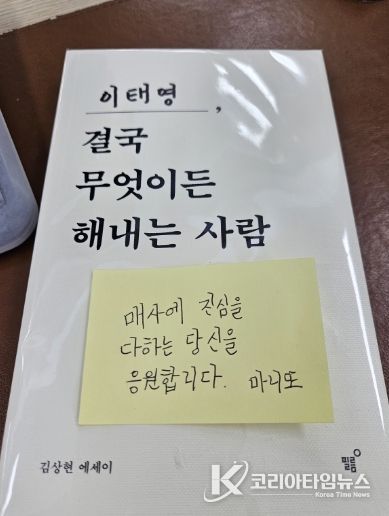 이태영,
결국
무엇이든
해내는 사람
매사에 진심을
다하는 당신을
응원합니다. 마니또
김상현 에세이
필름
K 코리아타임뉴스
Korea Time News